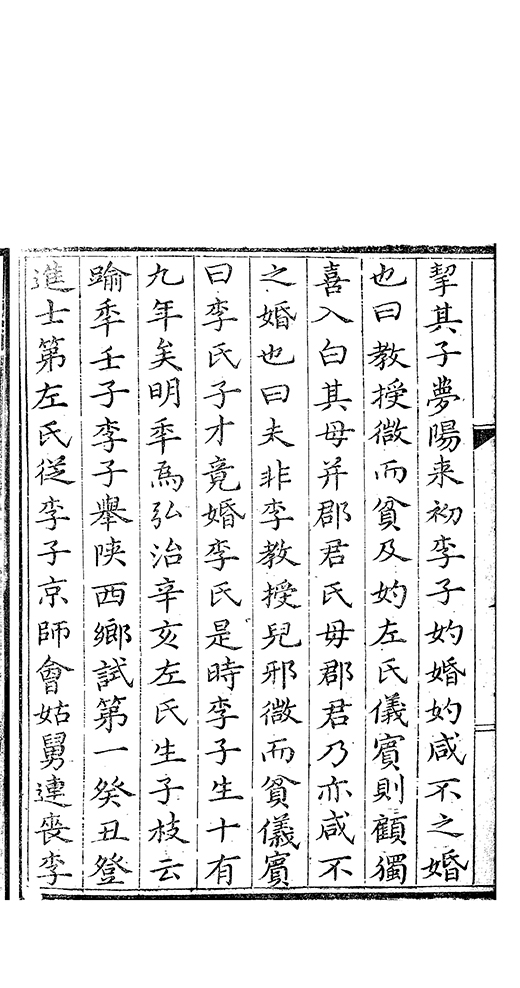 挈其子夢陽来初李子妁婚妁咸不之婚
也曰教授微而貧及妁左氏儀賓則顧獨
喜入白其母并郡君氏母郡君乃亦咸不
之婚也曰夫非李教授兒邪微而貧儀賓
曰李氏子才竟婚李氏是時李子生十有
九年矣明年為弘治辛亥左氏生子枝云
踰年壬子李子舉陝西鄉試第一癸丑登
進士第左氏從李子京師會姑舅連喪李